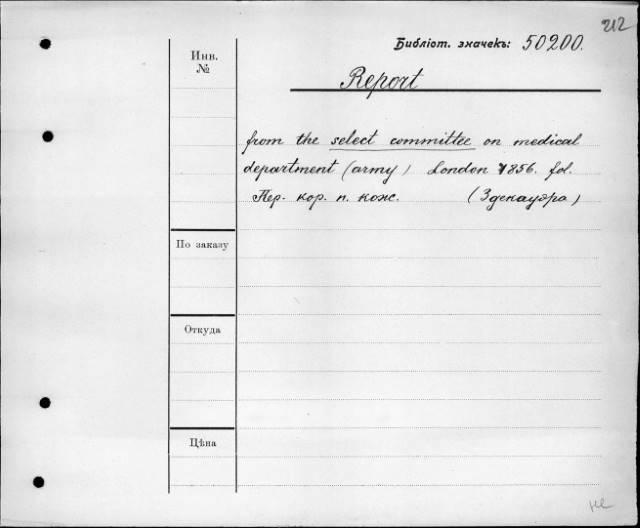 212
Библіот. значекъ: 50200.
Инв.
№
Report
from the select committee on medical
department (army) London 1856. fol.
Пер. кор. п. кож. (Здекауэра)
По заказу
Откуда
Цѣна